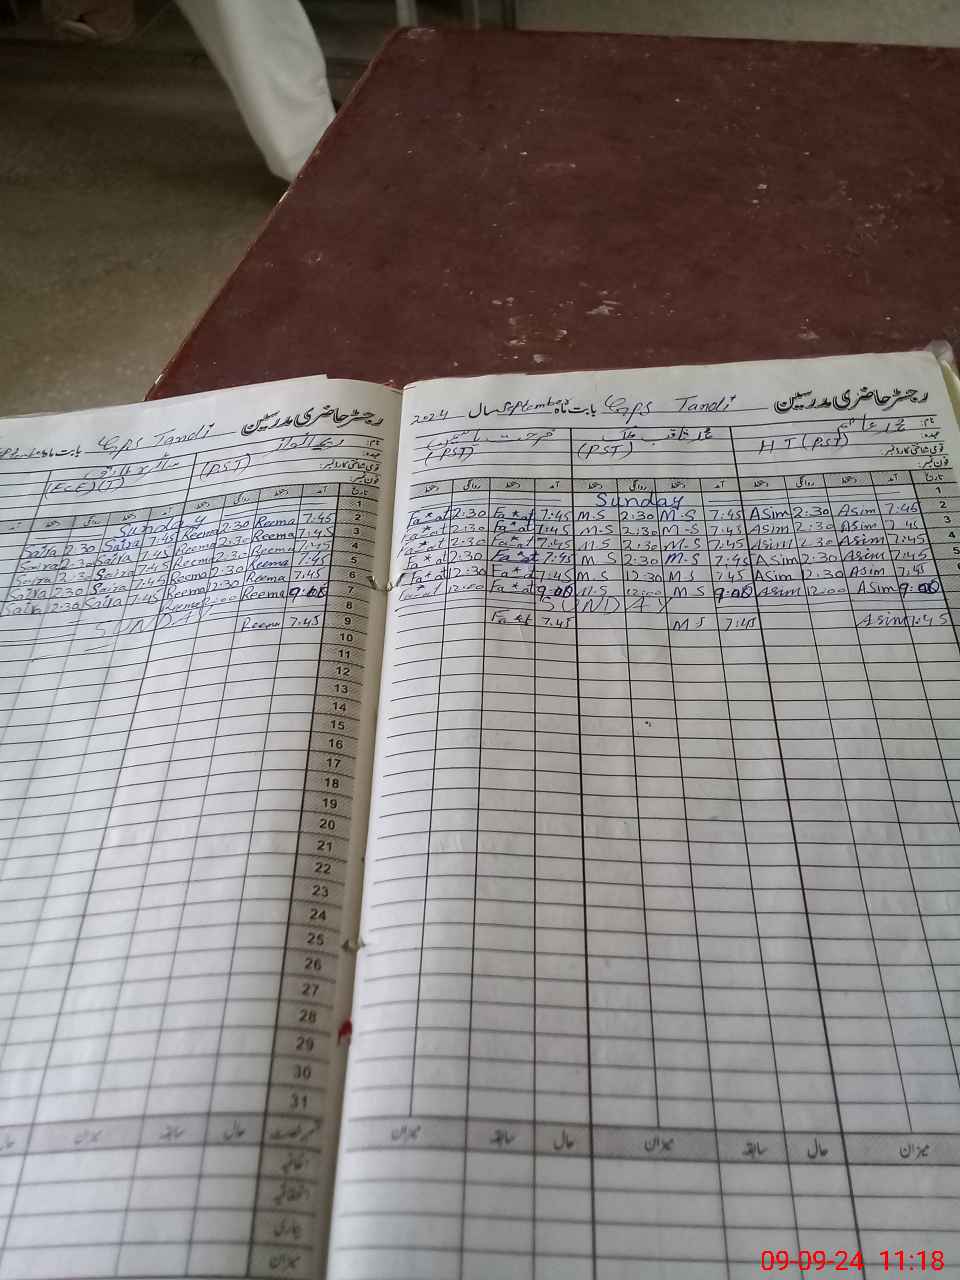 رجسٹر حاضری مدرسین GPS Tandi بابت ماہ September سال 2024
نام:
عہدہ:
قومی شناختی کارڈ نمبر:
فون نمبر:
محمد عاصم
HT (PST)
محمد ثاقب
(PST)
(PST)
تاریخ آمد دستخط روانگی دستخط آمد دستخط روانگی دستخط آمد دستخط روانگی دستخط
1 Sunday
2 7:45 Asim 2:30 Asim 7:45 M.S 2:30 M.S 7:45 Fa*at 2:30 Fa*at
3 7:45 Asim 2:30 Asim 7:45 M.S 2:30 M.S 7:45 Fa*at 2:30 Fa*at
4 7:45 Asim 2:30 Asim 7:45 M.S 2:30 M.S 7:45 Fa*at 2:30 Fa*at
5 7:45 Asim 2:30 Asim 7:45 M.S 2:30 M S 7:45 Fa*at 2:30 Fa*at
6 7:45 Asim 12:30 Asim 7:45 M S 12:30 M.S 7:45 Fa*at 12:30 Fa*at
9:00 Asim 12:00 Asim 9:00 M S 12:00 M.S 9:00 Fa*at 12:00 Fa*at
SUNDAY
7:45 Asim 7:45 M S 7:45 Fa*at
میزان حال سابقہ میزان حال سابقہ میزان
رجسٹر حاضری مدرسین GPS Tandi بابت ماہ
نام:
عہدہ:
قومی شناختی کارڈ نمبر:
فون نمبر:
(PST)
(ECE)(T)
تاریخ آمد دستخط روانگی دستخط آمد دستخط روانگی دستخط آمد
1 Sunday
2 7:45 Reema 2:30 Reema 7:45 Saira 2:30 Saira
3 7:45 Reema 2:30 Reema 7:45 Saira 2:30 Saira
4 7:45 Reema 2:30 Reema 7:45 Saira 2:30 Saira
5 7:45 Reema 2:30 Reema 7:45 Saira 2:30 Saira
6 7:45 Reema 12:30 Reema 7:45 Saira 12:30 Saira
7 9:00 Reema 12:00 Reema
8 SUNDAY
9 7:45 Reema
10
11
12
13
14
15
16
17
18
19
20
21
22
23
24
25
26
27
28
29
30
31
قسم رخصت حال سابقہ میزان حال
اتفاقیہ
بیماری
میزان
09-09-24 11:18